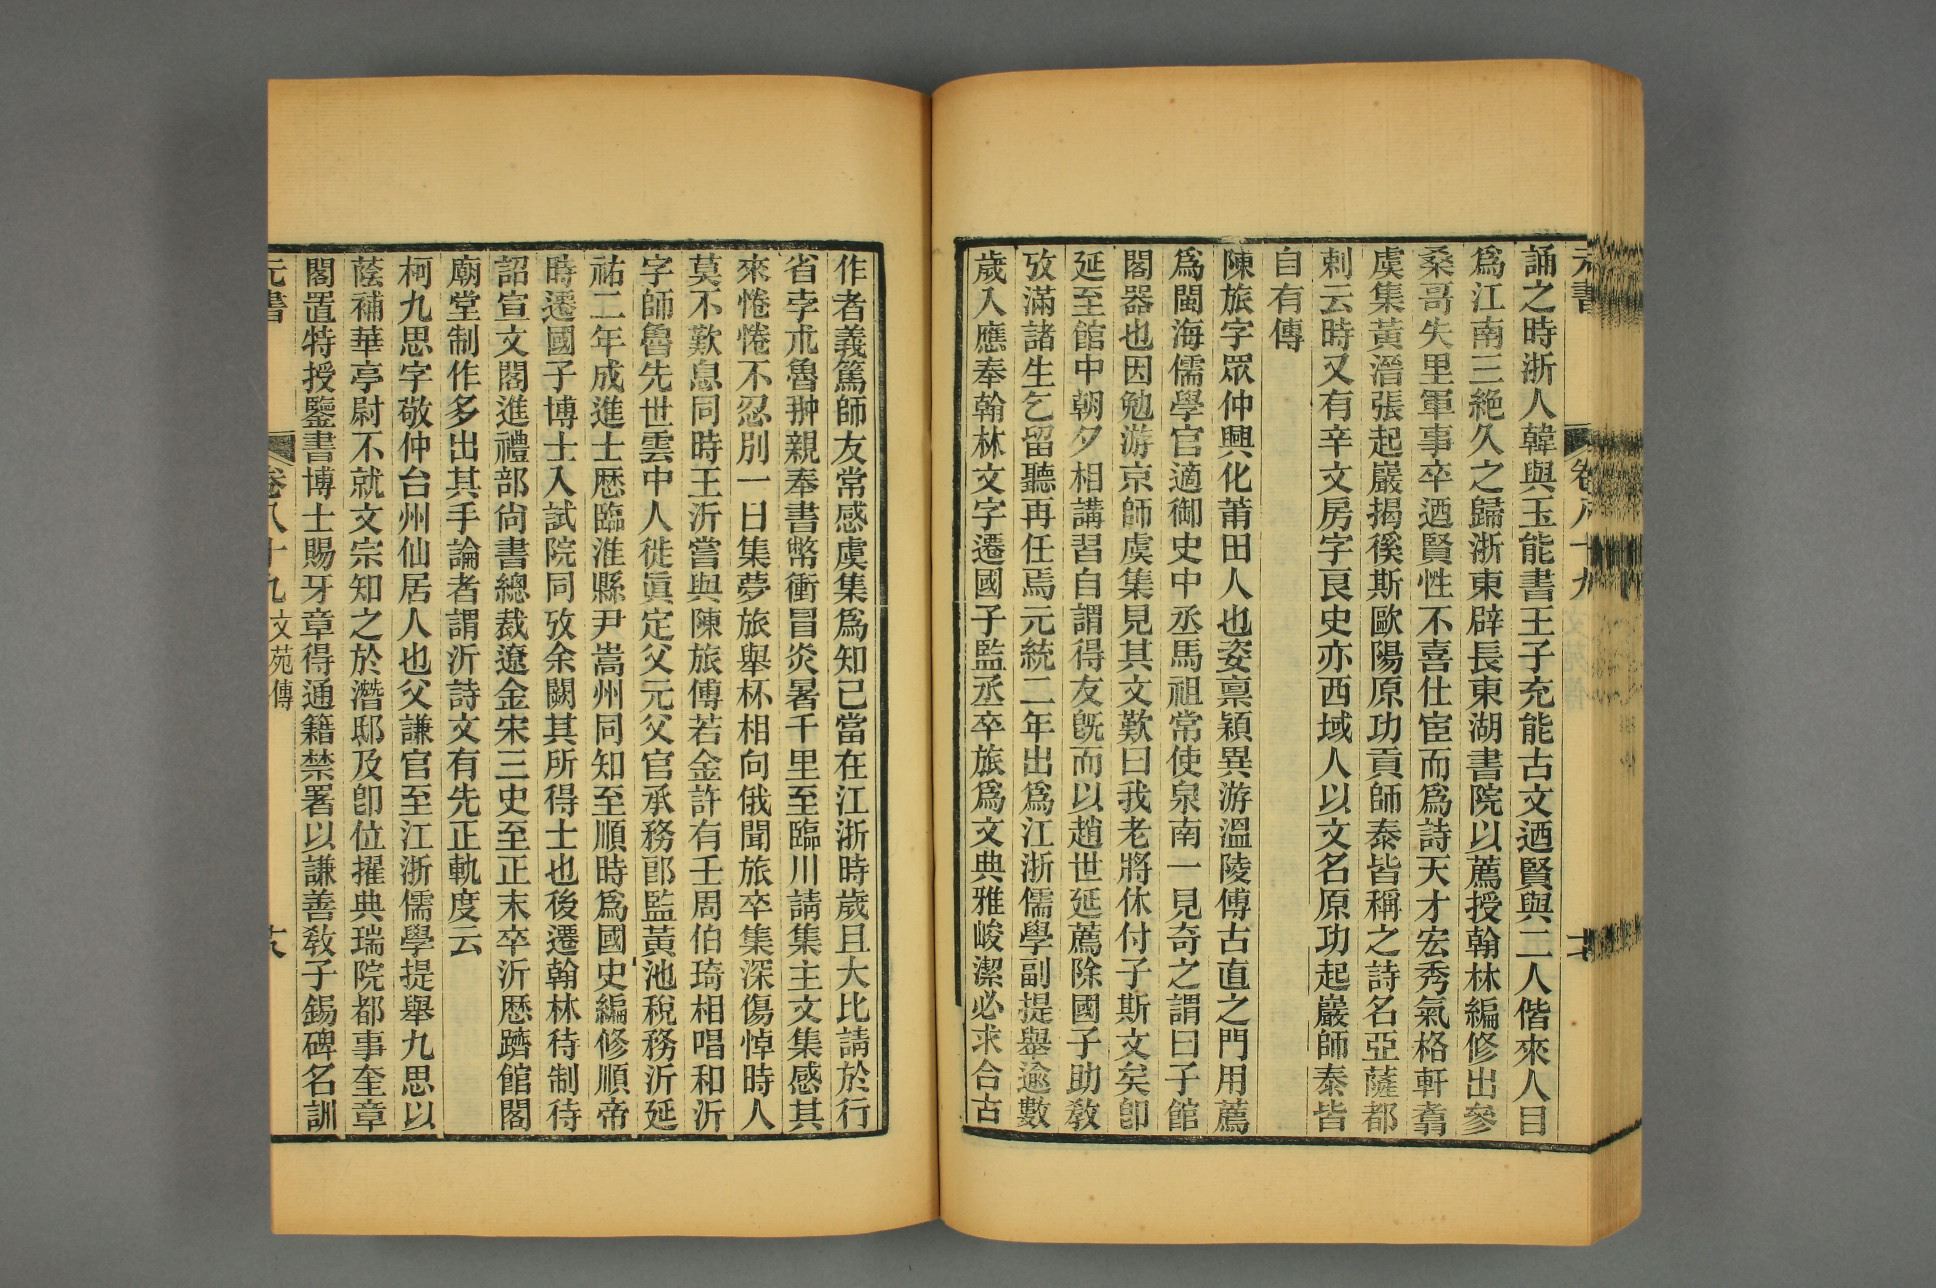 元書 卷八十九 文苑傳 十七
誦之時浙人韓與玉能書王子充能古文迺賢與二人偕來人目
爲江南三絶久之歸浙東辟長東湖書院以薦授翰林編修出參
桑哥失里軍事卒迺賢性不喜仕宦而爲詩天才宏秀氣格軒翥
虞集黃溍張起巖揭徯斯歐陽原功貢師泰皆稱之詩名亞薩都
剌云時又有辛文房字良史亦西域人以文名原功起巖師泰皆
自有傳
陳旅字眾仲興化莆田人也姿稟穎異游溫陵傅古直之門用薦
爲閩海儒學官適御史中丞馬祖常使泉南一見奇之謂曰子館
閣器也因勉游京師虞集見其文歎曰我老將休付子斯文矣卽
延至館中朝夕相講習自謂得友旣而以趙世延薦除國子助敎
攷滿諸生乞留聽再任焉元統二年出爲江浙儒學副提舉逾數
歲入應奉翰林文字遷國子監丞卒旅爲文典雅峻潔必求合古
作者義篤師友常感虞集爲知己當在江浙時歲且大比請於行
省孛朮魯翀親奉書幣衝冒炎暑千里至臨川請集主文集感其
來惓惓不忍別一日集夢旅舉杯相向俄聞旅卒集深傷悼時人
莫不歎息同時王沂嘗與陳旅傅若金許有壬周伯琦相唱和沂
字師魯先世雲中人徙眞定父元父官承務郎監黃池稅務沂延
祐二年成進士歴臨淮縣尹嵩州同知至順時爲國史編修順帝
時遷國子博士入試院同攷余闕其所得士也後遷翰林待制待
詔宣文閣進禮部尙書總裁遼金宋三史至正末卒沂歴躋館閣
廟堂制作多出其手論者謂沂詩文有先正軌度云
柯九思字敬仲台州仙居人也父謙官至江浙儒學提舉九思以
蔭補華亭尉不就文宗知之於濳邸及卽位擢典瑞院都事奎章
閣置特授鑒書博士賜牙章得通籍禁署以謙善敎子錫碑名訓
元書 卷八十九 文苑傳 十八